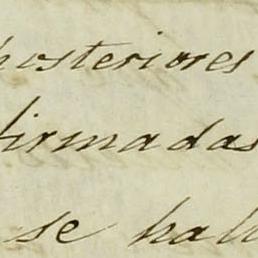 posteriores
firmadas
se hall